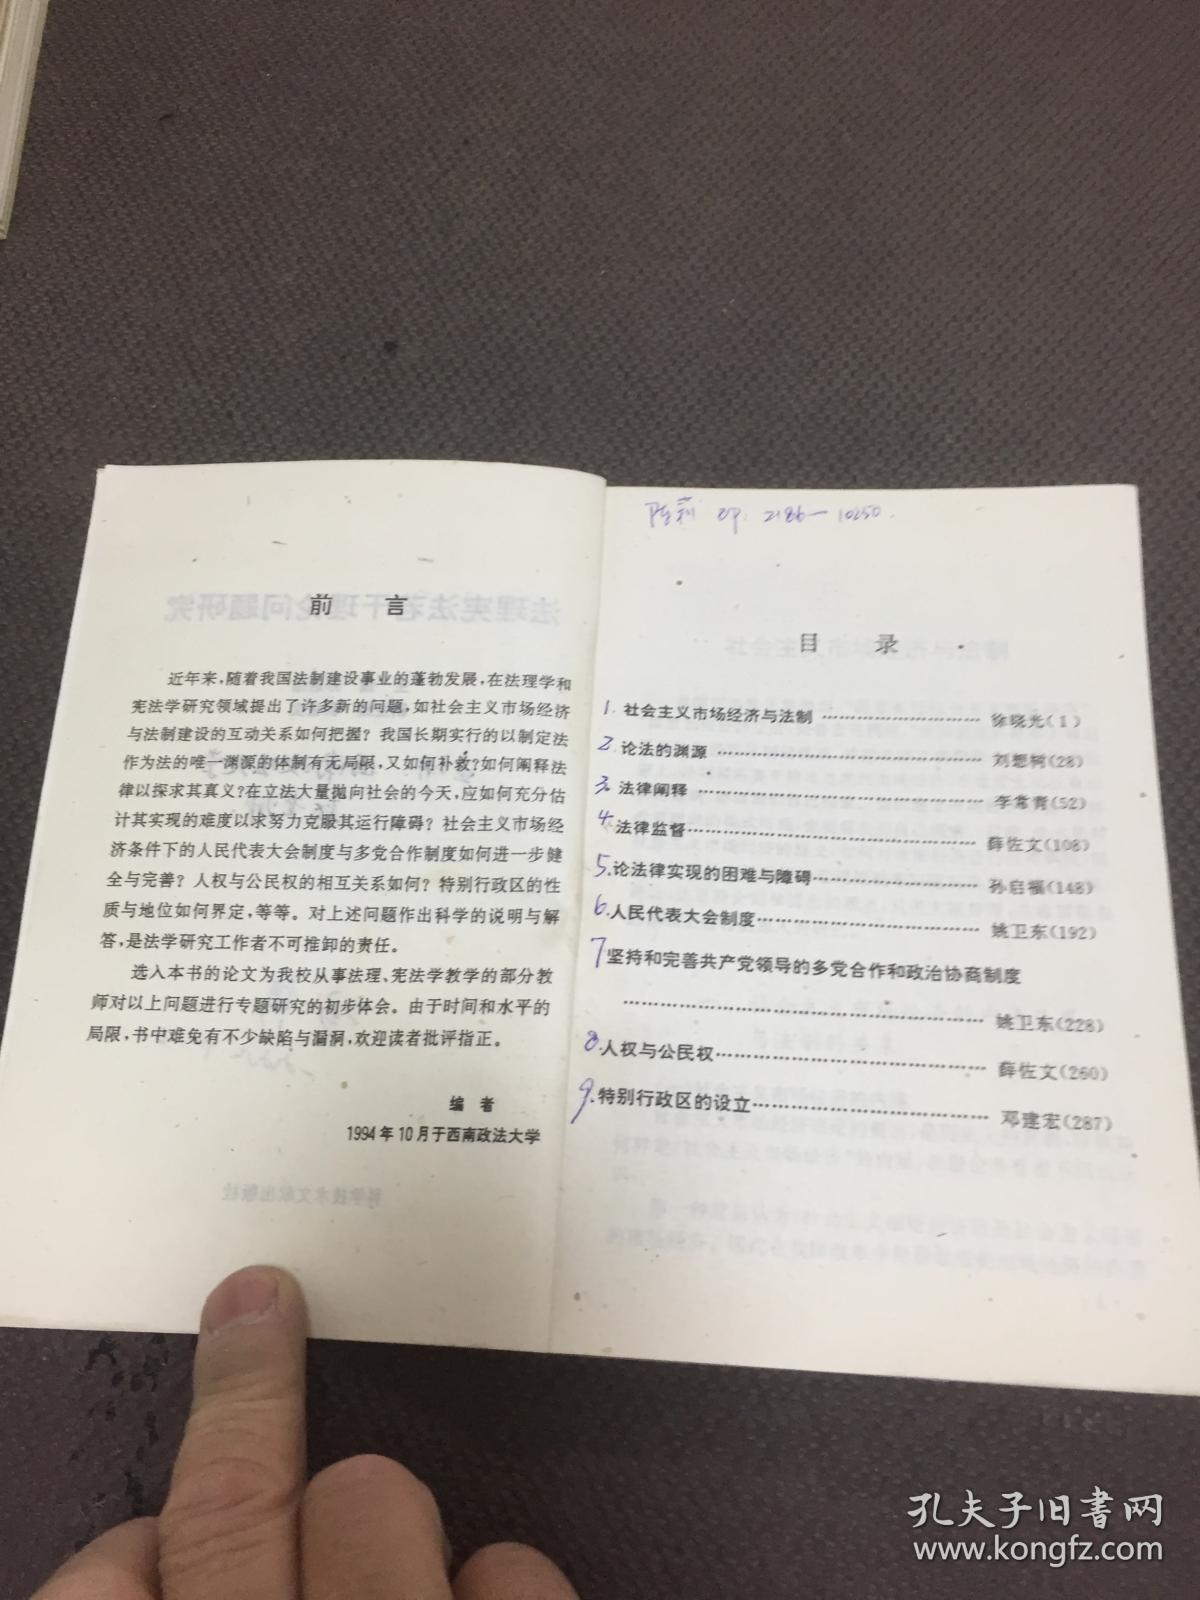 前言
近年来,随着我国法制建设事业的蓬勃发展,在法理学和
宪法学研究领域提出了许多新的问题,如社会主义市场经济
与法制建设的互动关系如何把握？我国长期实行的以制定法
作为法的唯一渊源的体制有无局限,又如何补救?如何阐释法
律以探求其真义?在立法大量抛向社会的今天,应如何充分估
计其实现的难度以求努力克服其运行障碍？社会主义市场经
济条件下的人民代表大会制度与多党合作制度如何进一步健
全与完善？人权与公民权的相互关系如何？特别行政区的性
质与地位如何界定,等等。对上述问题作出科学的说明与解
答,是法学研究工作者不可推卸的责任。
选入本书的论文为我校从事法理、宪法学教学的部分教
师对以上问题进行专题研究的初步体会。由于时间和水平的
局限,书中难免有不少缺陷与漏洞,欢迎读者批评指正。
编者
1994年10月于西南政法大学
2186—10250.
目录
1. 社会主义市场经济与法制 …………………… 徐晓光(1)
2. 论法的渊源 …………………… 刘想树(28)
3. 法律阐释 …………………… 李常青(52)
4. 法律监督…………………… 薛佐文(108)
5. 论法律实现的困难与障碍…………………… 孙启福(148)
6. 人民代表大会制度…………………… 姚卫东(192)
7 坚持和完善共产党领导的多党合作和政治协商制度
…………………… 姚卫东(228)
8. 人权与公民权…………………… 薛佐文(260)
9. 特别行政区的设立…………………… 邓建宏(287)
孔夫子旧书网
www.kongfz.com